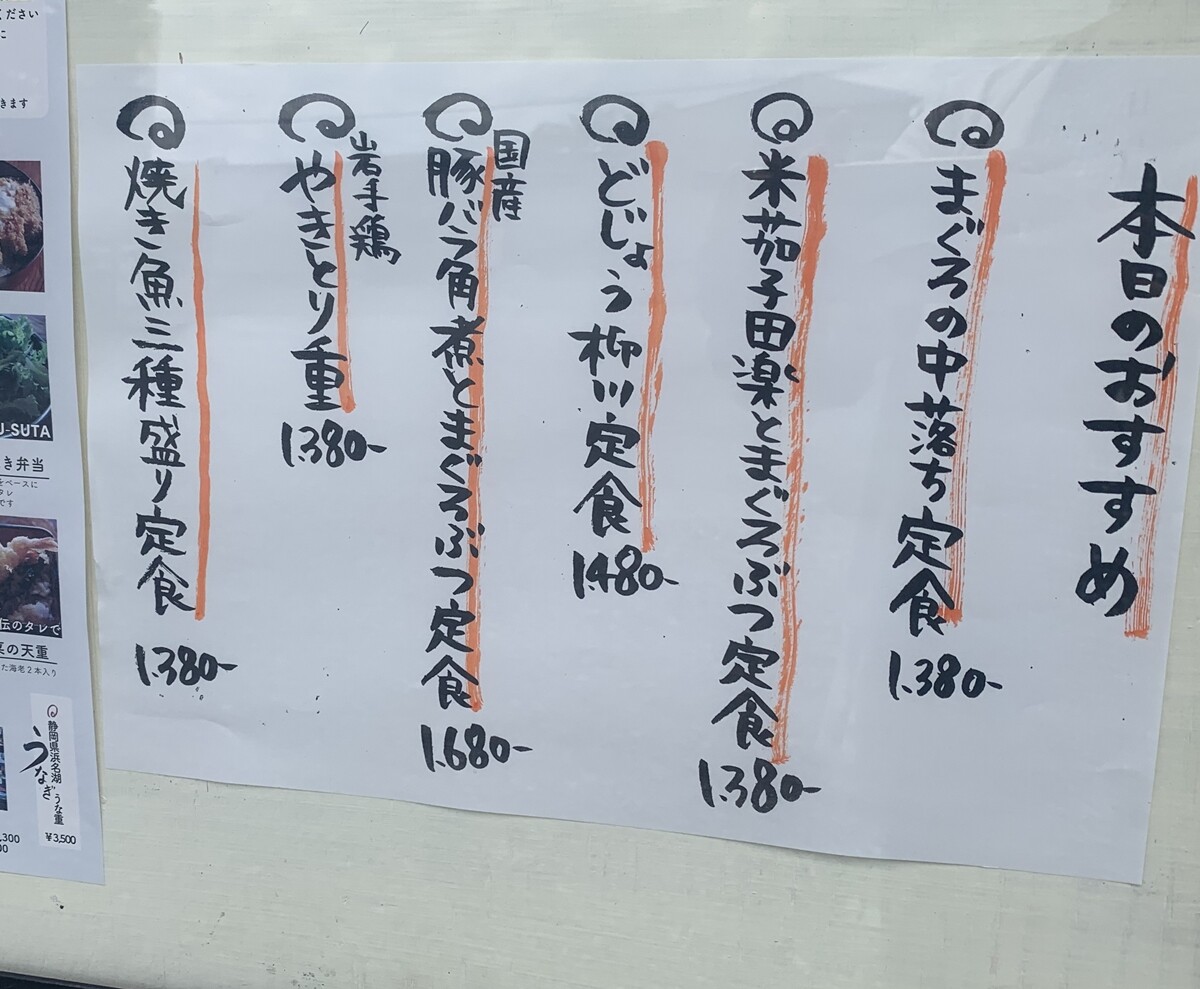 本日のおすすめ
まぐろの中落ち定食
1.380-
米茄子田楽とまぐろぶつ定食
1.380-
どじょう柳川定食
1.480-
国産
豚バラ角煮とまぐろぶつ定食
1.680-
岩手鶏
やきとり重
1.380-
焼き魚三種盛り定食
1.380-
ください
に
きます
U-SUTA
き弁当
をベースに
タレ
です
伝のタレで
の天重
た海老2本入り
静岡県浜名湖
うなぎ
うな重
¥3,500
,300
00